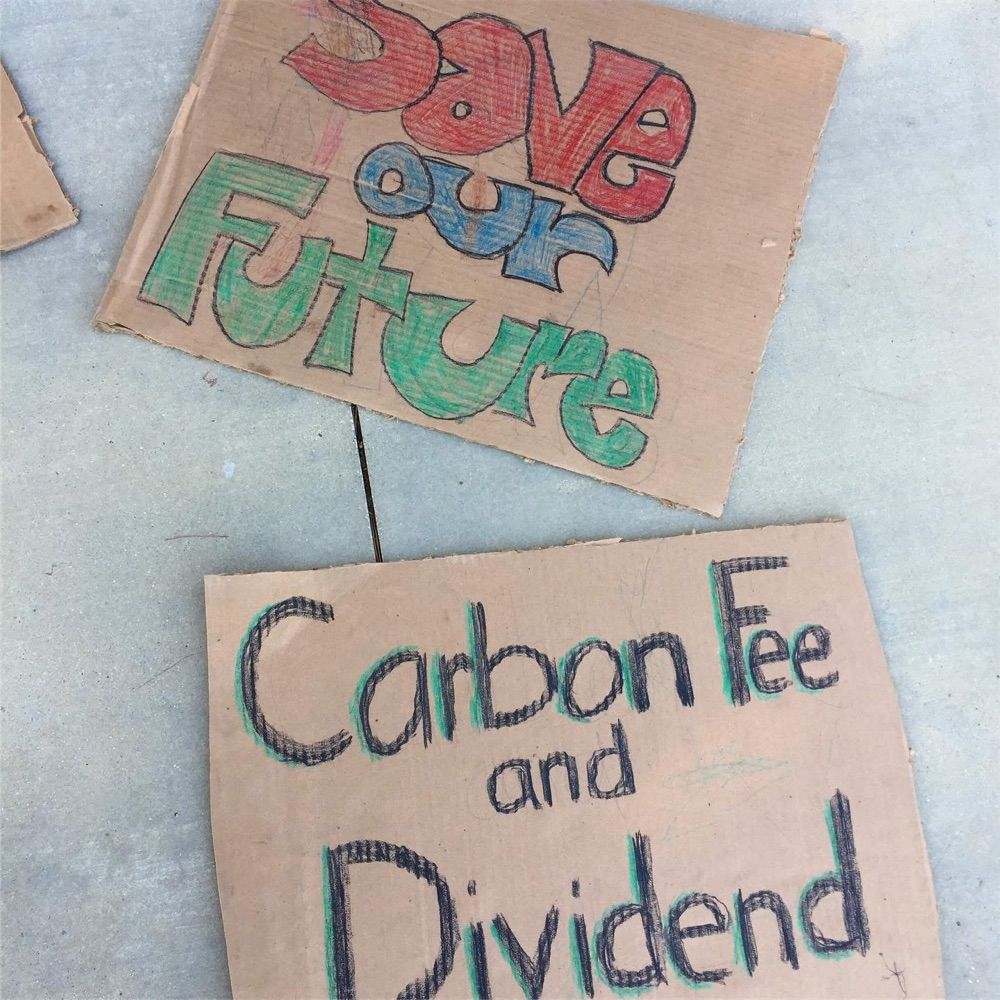 Save
our
Future
Carbon Fee
and
Dividend